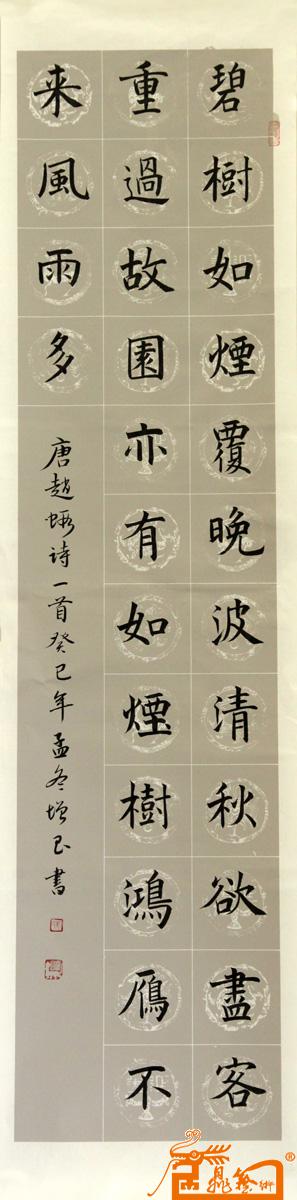 碧樹如煙覆晚波清秋欲盡客
重過故園亦有如煙樹鴻雁不
来風雨多
唐趙嘏诗一首癸巳年孟冬增民書